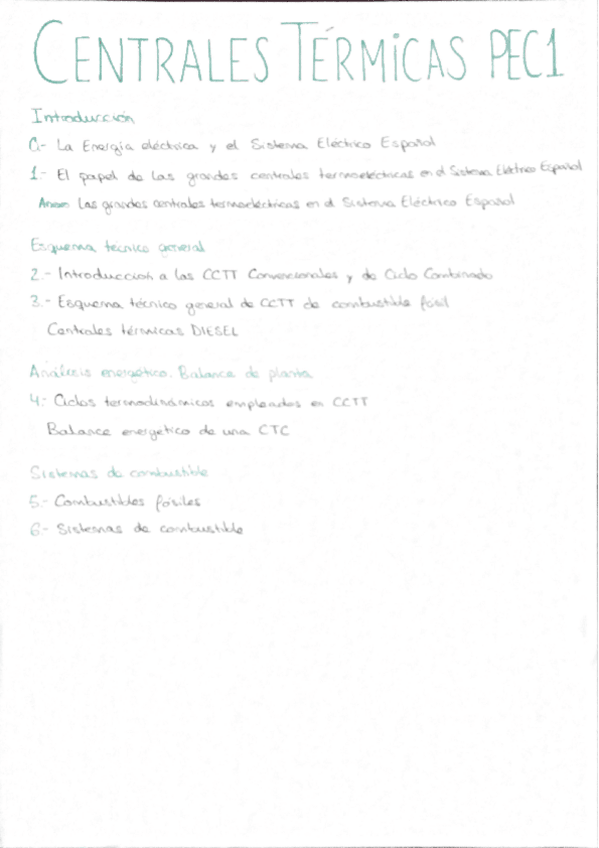 CENTRALES TÉRMICAS PEC1
Introducción
0.- La Energía eléctrica y el Sistema Eléctrico Español
1.- El papel de las grandes centrales termoeléctricas en el Sistema Eléctrico Español
Anexo Las grandes centrales termoeléctricas en el Sistema Eléctrico Español
Esquema técnico general
2.- Introducción a las CCTT Convencionales y de Ciclo Combinado
3.- Esquema técnico general de CCTT de combustible fósil
Centrales térmicas DIESEL
Análisis energético. Balance de planta
4.- Ciclos termodinámicos empleados en CCTT
Balance energético de una CTC
Sistemas de combustible
5.- Combustibles fósiles
6.- Sistemas de combustible